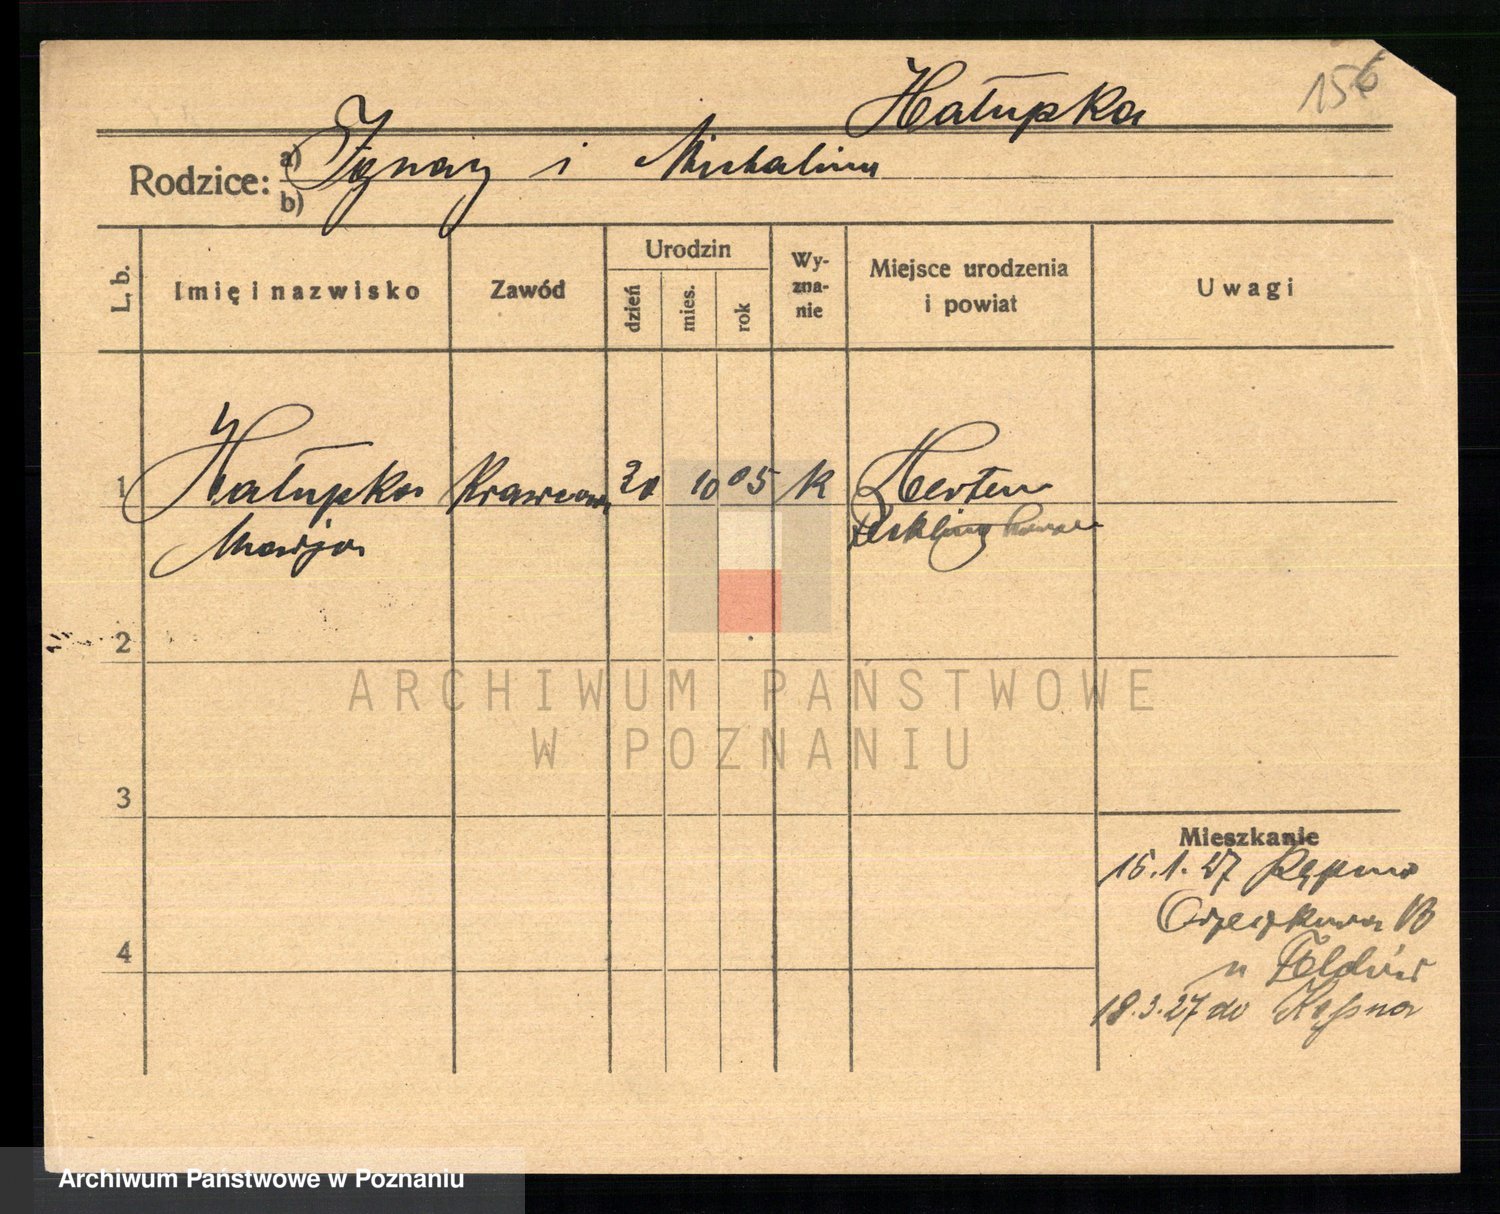 Hałupka
156
Rodzice: a) Ignacy i Michalina
b)
L. b.
Imię i nazwisko
Zawód
Urodzin
dzień
mies.
rok
Wy-
zna-
nie
Miejsce urodzenia
i powiat
Uwagi
1 Hałupka Krawcowa 20 10 05 k Herten
Marja Recklinghausen
2
3
4
Mieszkanie
15.1.27 Kępno
Orzeszkowa 13
u
18.3.27 do Kępna
ARCHIWUM PAŃSTWOWE
W POZNANIU
Archiwum Państwowe w Poznaniu